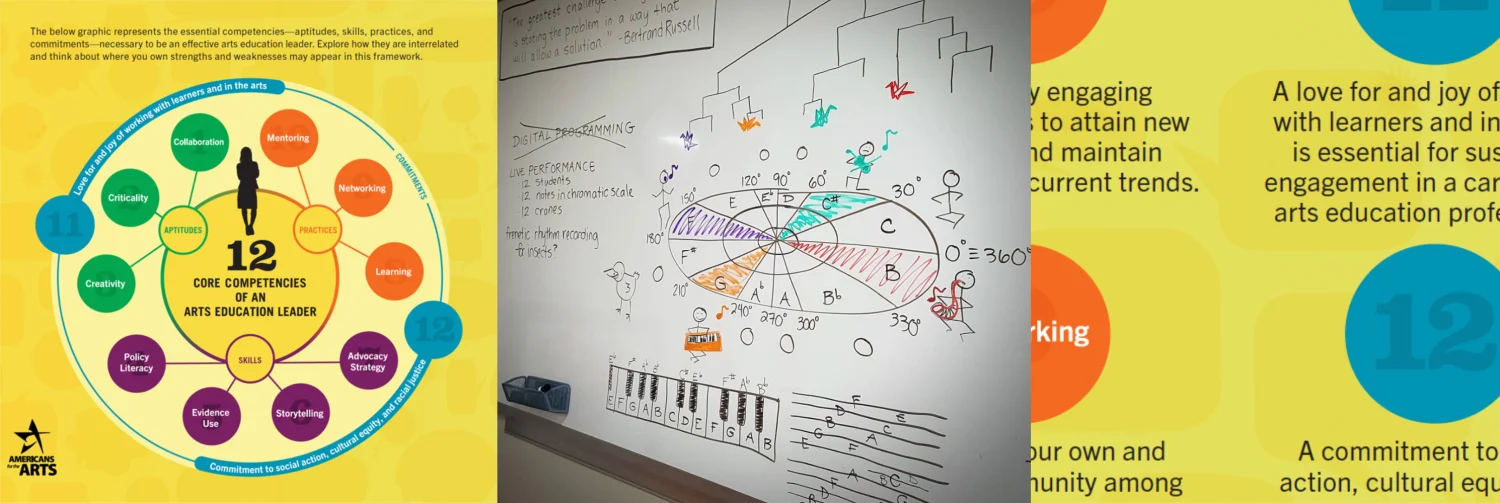 The below graphic represents the essential competencies—aptitudes, skills, practices, and
commitments—necessary to be an effective arts education leader. Explore how they are interrelated
and think about where you own strengths and weaknesses may appear in this framework.
Love for and joy of working with learners and in the arts
COMMITMENTS
Collaboration
Mentoring
Criticality
Networking
11
APTITUDES
PRACTICES
12
CORE COMPETENCIES
OF AN
ARTS EDUCATION LEADER
Creativity
Learning
12
SKILLS
Policy
Literacy
Advocacy
Strategy
Evidence
Use
Storytelling
Commitment to social action, cultural equity, and racial justice
AMERICANS
for the
ARTS
"The greatest challenge
is stating the problem in a way that
will allow a solution." -Bertrand Russell
DIGITAL PROGRAMMING
LIVE PERFORMANCE
12 students
12 notes in chromatic scale
12 cranes
frenetic rhythm recording
for insects?
150° 120° 90° 60° 30°
E Eb D C#
F C
180° 0°≡360°
F# B
G Ab A Bb
210° 240° 270° 300° 330°
3
Eb F# Ab Bb C# Eb F# Ab Bb
E F G A B C D E F G A B
F
D E
B C
G A
E F
A C
F B G
D
B
y engaging
s to attain new
nd maintain
current trends.
11
A love for and joy of
with learners and in
is essential for sus
engagement in a car
arts education profe
rking
12
our own and
munity among
A commitment to
action, cultural equ